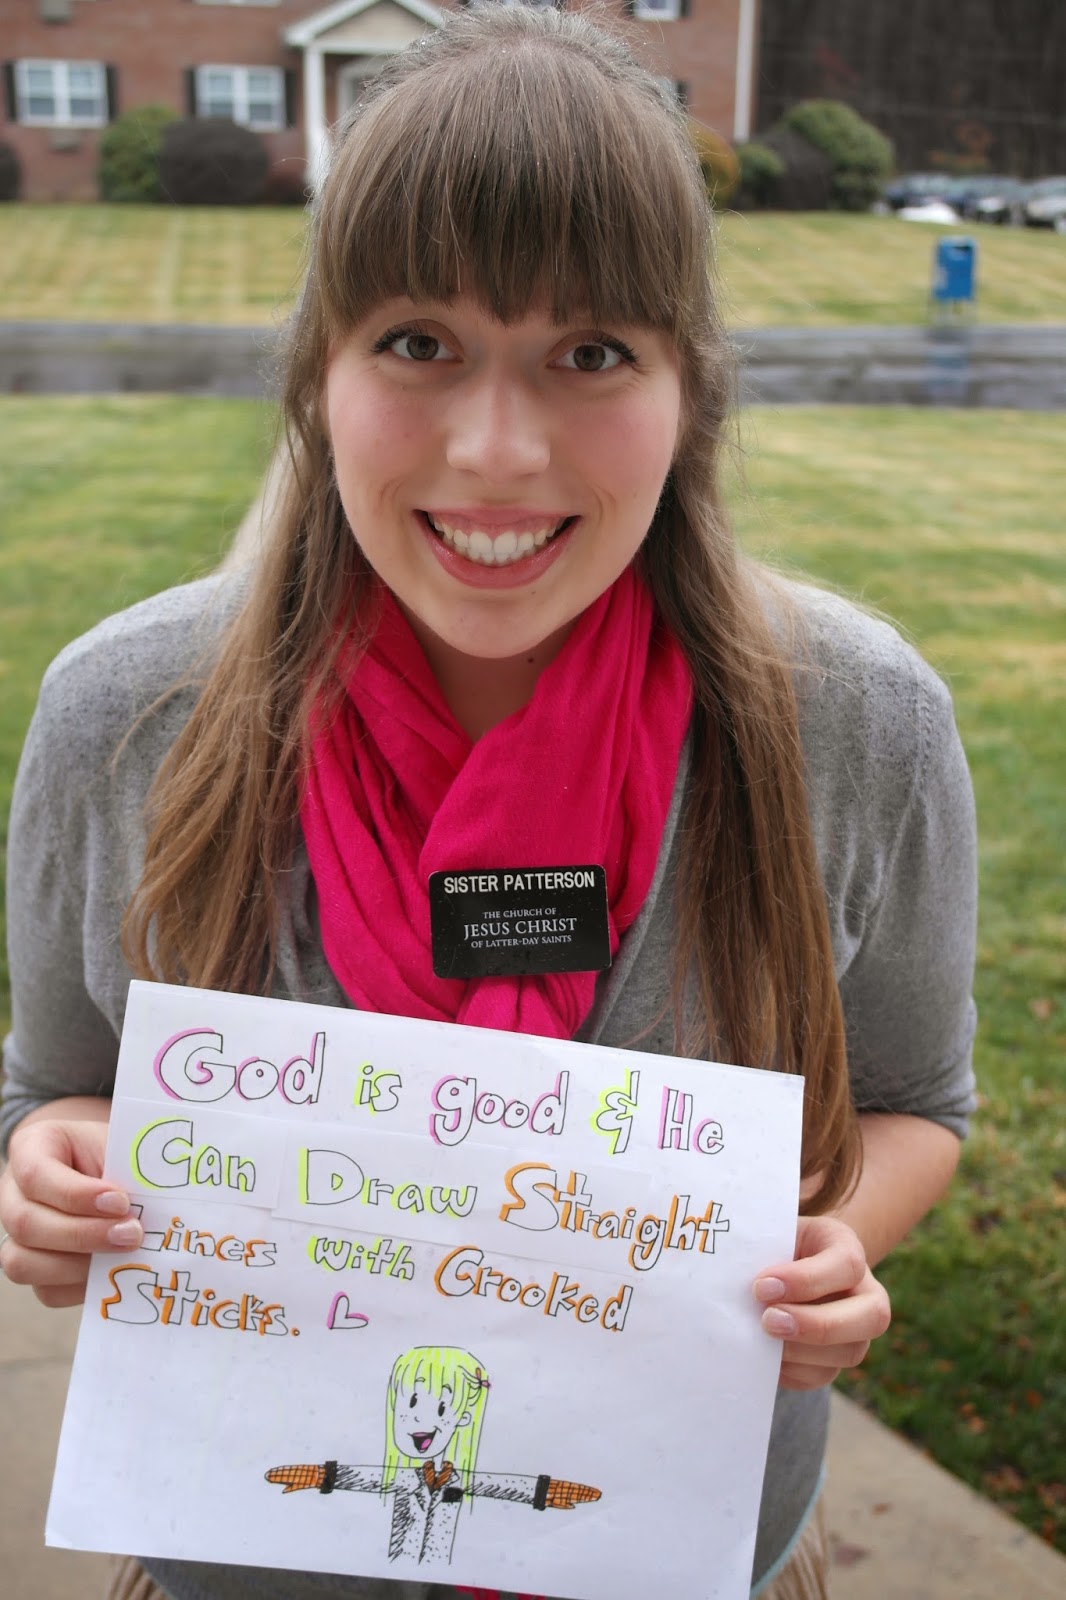 SISTER PATTERSON
THE CHURCH OF
JESUS CHRIST
OF LATTER-DAY SAINTS
God is good & He
Can Draw Straight
Lines with Crooked
Sticks.